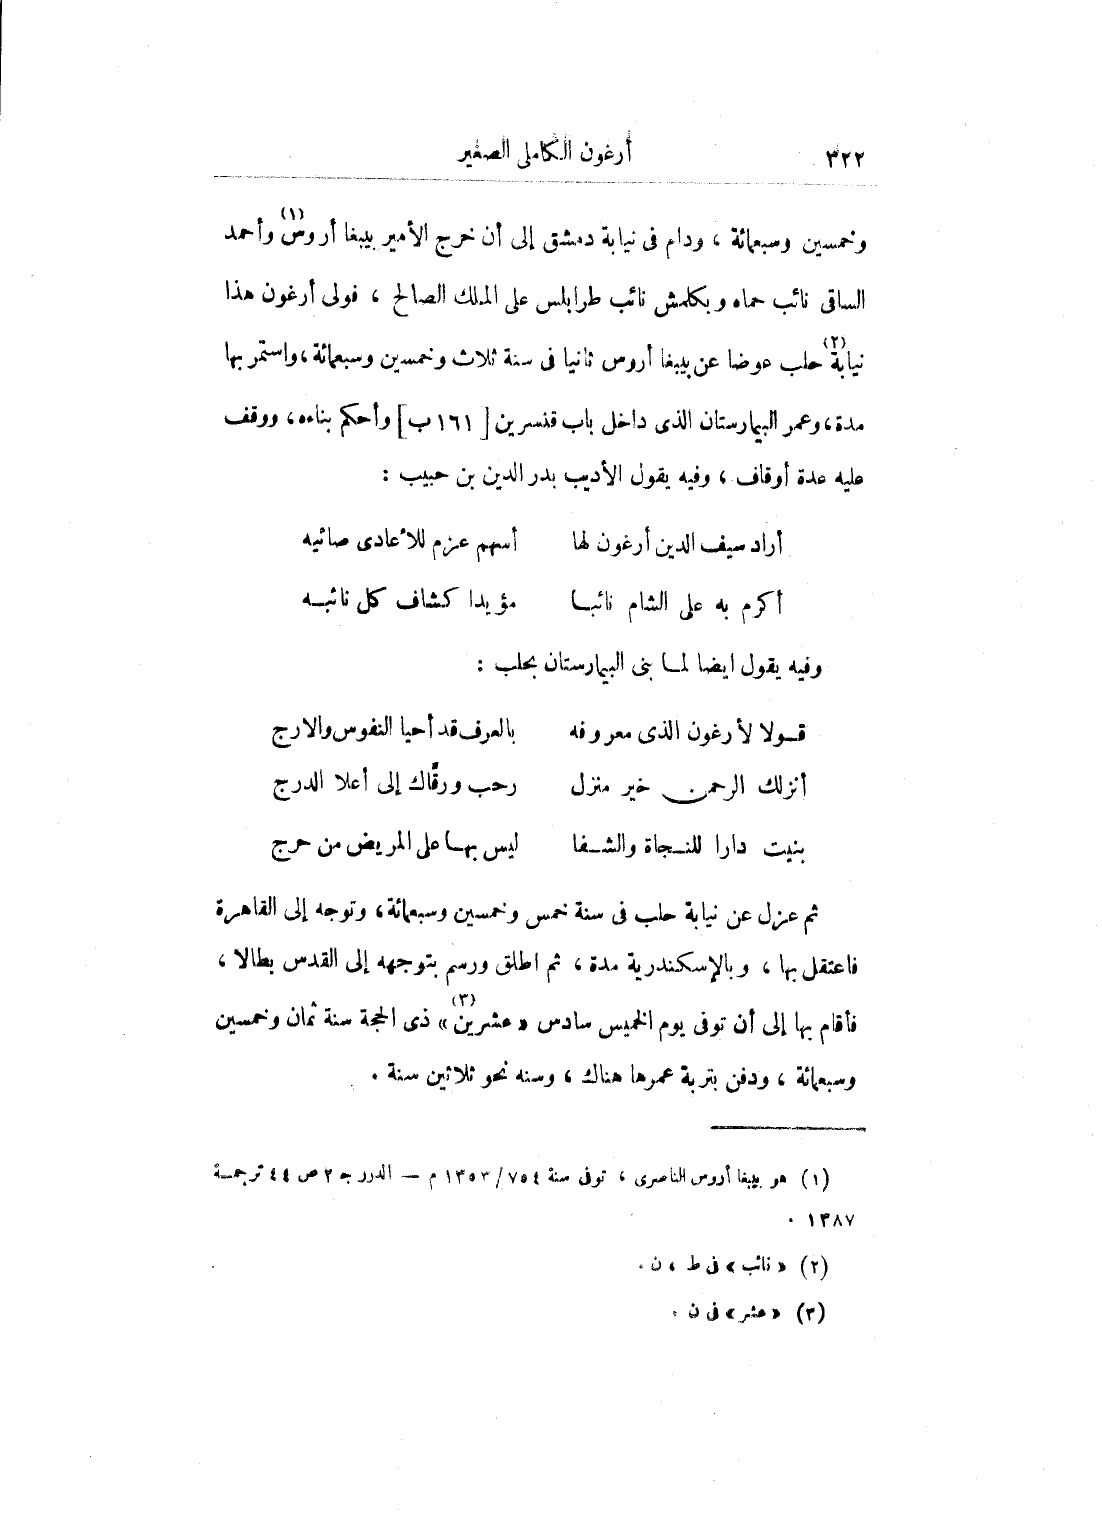 ٣٢٢ أرغون الكاملى الصغير
وخمسين وسبعمائة ، ودام فى نيابة دمشق إلى أن خرج الأمير بيبغا أروس(١) وأحمد
الساقى نائب حماه وبكلمش نائب طرابلس على الملك الصالح ، فولى أرغون هذا
نيابة(٢) حلب عوضا عن بيبغا أروس ثانيا فى سنة ثلاث وخمسين وسبعمائة ، واستمر بها
مدة ، وعمر البيمارستان الذى داخل باب قنسرين [ ١٦١ ب ] وأحكم بناءه ، ووقف
عليه عدة أوقاف ، وفيه يقول الأديب بدر الدين بن حبيب :
أراد سيف الدين أرغون لها أسهم عزم للأعادى صائبه
أكرم به على الشام نائبا مؤيدا كشاف كل نائبه
وفيه يقول ايضا لما بنى البيمارستان بحلب :
قولا لأرغون الذى معروفه بالعرف قد أحيا النفوس والارج
أنزلك الرحمن خير منزل رحب ورقّاك إلى أعلا الدرج
بنيت دارا للنجاة والشفا ليس بها على المريض من حرج
ثم عزل عن نيابة حلب فى سنة خمس وخمسين وسبعمائة ، وتوجه إلى القاهرة
فاعتقل بها ، وبالإسكندرية مدة ، ثم اطلق ورسم بتوجهه إلى القدس بطالا ،
فأقام بها إلى أن توفى يوم الخميس سادس « عشرين(٣) » ذى الحجة سنة ثمان وخمسين
وسبعمائة ، ودفن بتربة عمرها هناك ، وسنه نحو ثلاثين سنة .
(١) هو بيبغا أروس الناصرى ، توفى سنة ٧٥٤ / ١٣٥٣ م — الدرر جـ ٢ ص ٤٤ ترجمة
١٣٨٧ .
(٢) « نائب » فى ط ، ن .
(٣) « عشر » فى ن .